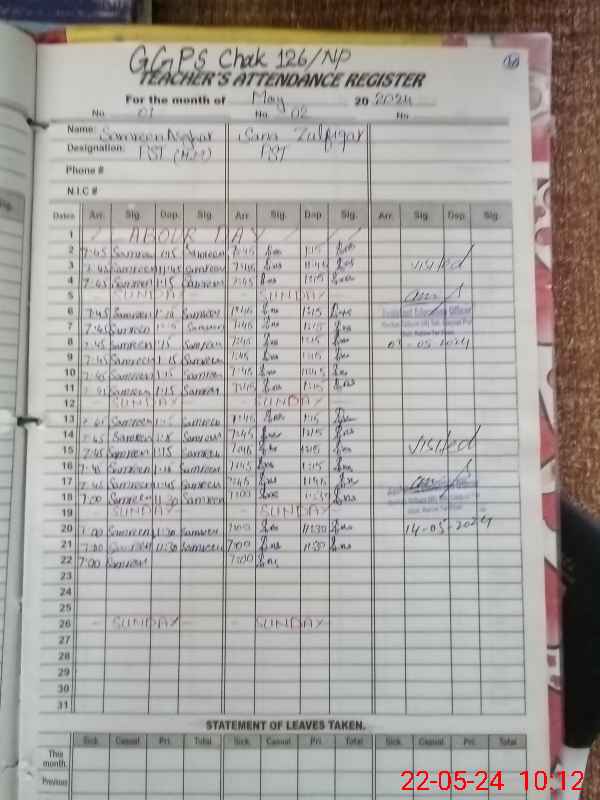 GGPS Chak 126/NP
TEACHER'S ATTENDANCE REGISTER
For the month of May 20 2024
No 01 No 02 No
Name: Samreen Asghar Sana Zulfiqar
Designation: PST PST
Phone #
N.I.C #
Dates Arr. Sig. Dep. Sig. Arr. Sig. Dep. Sig. Arr. Sig. Dep. Sig.
1 LABOUR DAY
2 7:45 Samreen 1:15 Samreen 7:45 1:15
3 7:45 Samreen 11:45 Samreen 7:45 11:45 visited
4 7:45 Samreen 1:15 Samreen 7:45 1:15
5 SUNDAY SUNDAY
6 7:45 Samreen 1:15 Samreen 7:45 1:15 Assistant Education Officer
7 7:45 Samreen 1:15 Samreen 7:45 1:15
8 7:45 Samreen 1:15 Samreen 7:45 1:15 -05-2024
9 7:45 Samreen 1:15 Samreen 7:45 1:15
10 7:45 Samreen Samreen 7:45
11 7:45 Samreen 1:15 Samreen 7:45 1:15
12 SUNDAY SUNDAY
13 7:45 Samreen 1:15 Samreen 7:45 1:15
14 7:45 Samreen 1:15 Samreen 7:45 1:15
15 7:45 Samreen 1:15 Samreen 7:45 1:15 visited
16 7:45 Samreen 1:15 Samreen 7:45 1:15
17 7:45 Samreen 11:45 Samreen 7:45 11:45
18 7:00 Samreen 11:30 Samreen 7:00 11:30
19 SUNDAY SUNDAY
20 7:00 Samreen 11:30 Samreen 7:00 11:30 14-05-2024
21 7:00 Samreen 11:30 Samreen 7:00 11:30
22 7:00 Samreen 7:00
23
24
25
26 SUNDAY SUNDAY
27
28
29
30
31
STATEMENT OF LEAVES TAKEN.
Sick. Casual Pri. Total Sick. Casual Pri. Total Sick. Casual Pri. Total
This month.
Previous
22-05-24 10:12